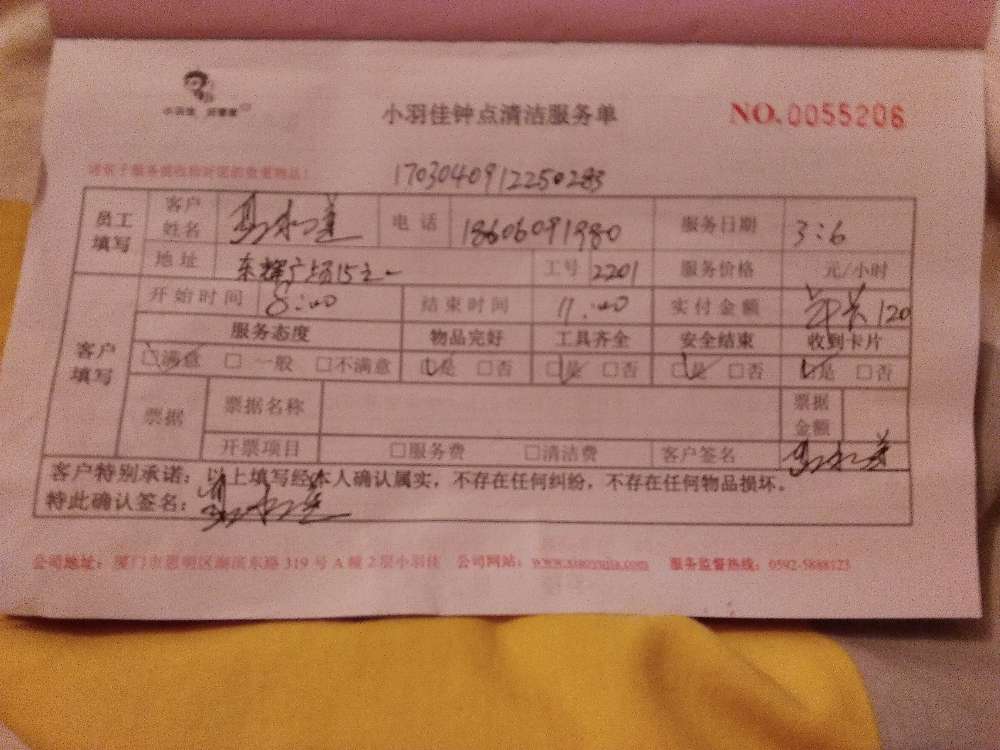 小羽佳 好管家
小羽佳钟点清洁服务单 NO.0055206
1703040912250283
员工填写 客户姓名 电话 18606091980 服务日期 3:6
地址 东辉广场15 工号 2201 服务价格 元/小时
客户填写 开始时间 8:00 结束时间 11:00 实付金额 120
服务态度 物品完好 工具齐全 安全结束 收到卡片
□满意 □一般 □不满意 □是 □否 □是 □否 □是 □否 □是 □否
票据 票据名称 票据金额
开票项目 □服务费 □清洁费 客户签名
客户特别承诺：以上填写经本人确认属实，不存在任何纠纷，不存在任何物品损坏。
特此确认签名：
公司地址：厦门市思明区湖滨东路 319 号 A 幢 2 层小羽佳 公司网站：www.xiaoyujia.com 服务监督热线：0592-5888123